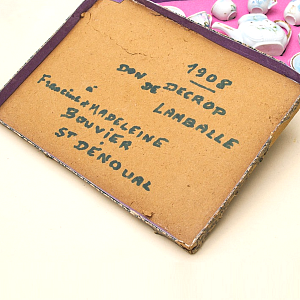 1908
DON DECROP
DE LANBALLE
à
Francine & MADELEINE
BOUVIER
ST DÉNOUAL